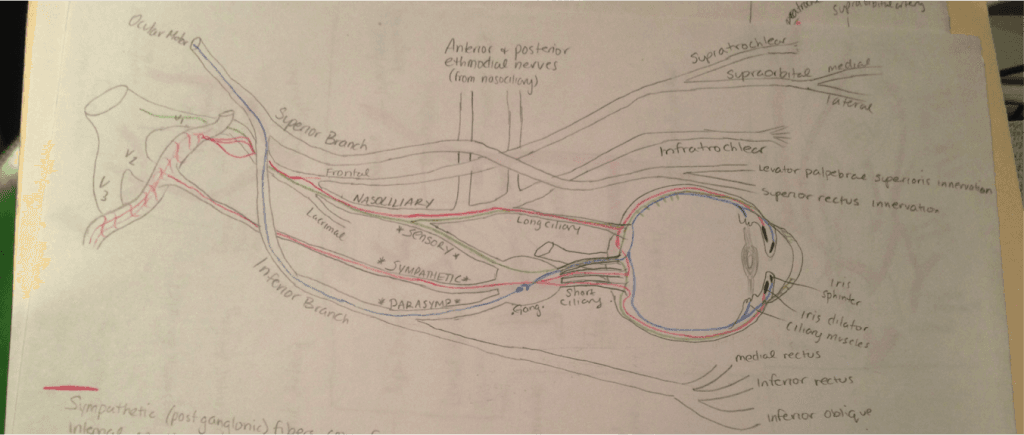 supraorbital artery
Ocular Motor
Anterior + posterior
ethmoidal nerves
(from nasociliary)
Supratrochlear
Supraorbital
medial
lateral
V1
V2
V3
Superior Branch
Frontal
Infratrochlear
Levator palpebrae superioris innervation
Superior rectus innervation
NASOCILIARY
Lacrimal
*SENSORY*
Long ciliary
*SYMPATHETIC*
*PARASYMP*
Inferior Branch
Gang.
Short
ciliary
Iris
sphinter
Iris dilator
Ciliary muscles
medial rectus
Inferior rectus
Inferior oblique
Sympathetic (postganglonic) fibers
internal